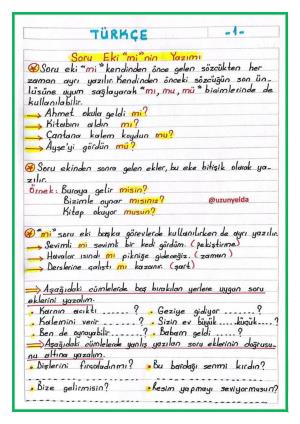 TÜRKÇE
-1-
Soru Eki "mi"nin Yazımı
Soru eki "mi" kendinden önce gelen sözcükten her
zaman ayrı yazılır. Kendinden önceki sözcüğün son ün-
lüsüne uyum sağlayarak "mı, mu, mü" biçimlerinde de
kullanılabilir.
→ Ahmet okula geldi mi?
→ Kitabını aldın mı?
→ Çantana kalem koydun mu?
→ Ayşe'yi gördün mü?
Soru ekinden sonra gelen ekler, bu eke bitişik olarak ya-
zılır.
Örnek: Buraya gelir misin?
Bizimle oynar mısınız?
@uzunyelda
Kitap okuyor musun?
"mi" soru eki başka görevlerde kullanılırken de ayrı yazılır.
→ Sevimli mi sevimli bir kedi gördüm. (pekiştirme)
→ Havalar ısındı mı pikniğe gideceğiz. (zaman)
→ Derslerine çalıştı mı kazanır. (şart)
→ Aşağıdaki cümlelerde boş bırakılan yerlere uygun soru
eklerini yazalım.
• Karnın acıktı ......?
• Geziye gidiyor ......?
• Kalemini verir ......?
• Sizin ev büyük ......büyük....?
• Ben de oynayabilir ......?
• Babam geldi ......?
→ Aşağıdaki cümlelerde yanlış yazılan soru eklerinin doğrusu-
nu altına yazalım.
• Dişlerini fırçaladınmı?
• Bu bardağı senmi kırdın?
• Bize gelirmisin?
• Resim yapmayı seviyormusun?